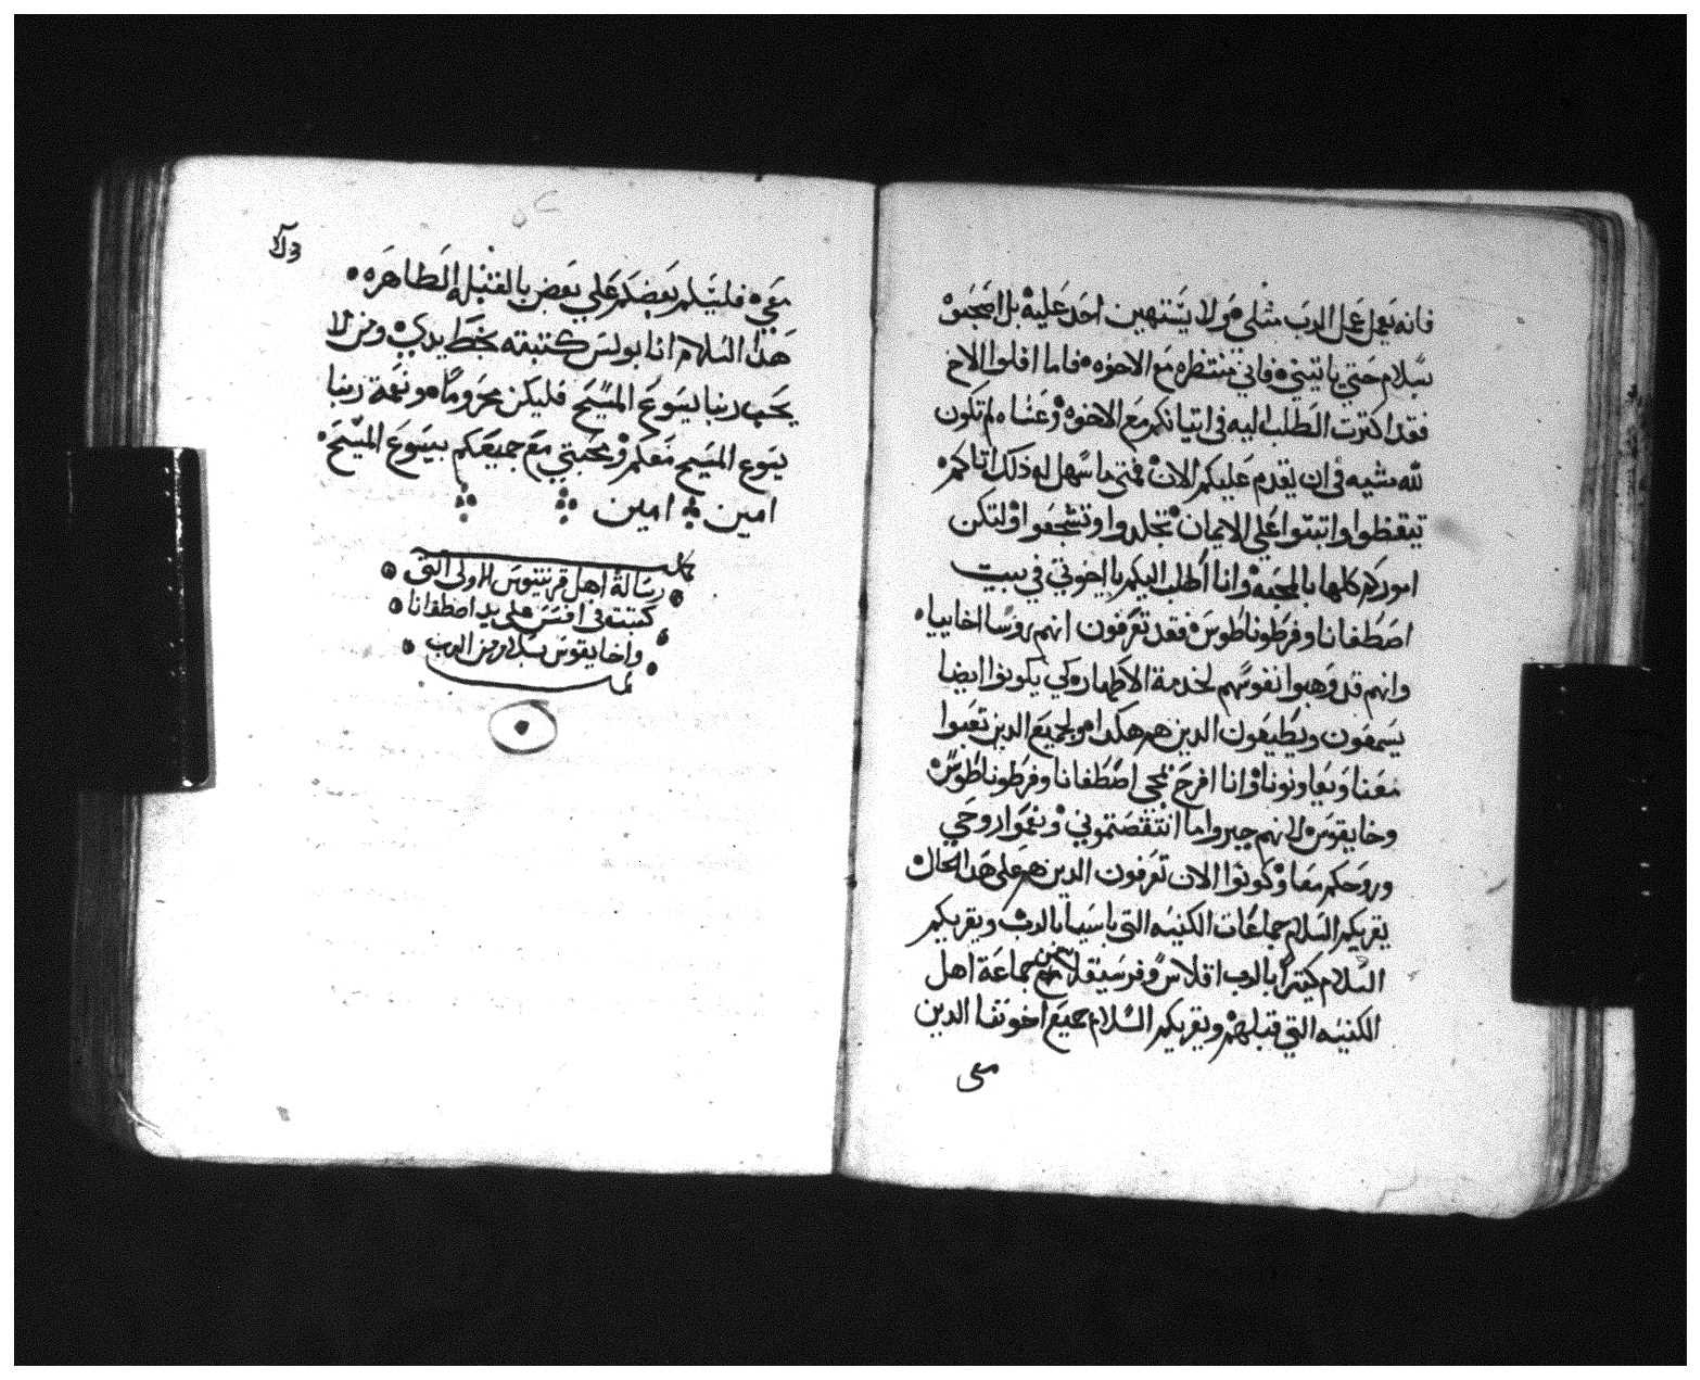 فانه يعمل عمل الرب مثلي ولا يستهين احد عليه بل اصحبوه
بسلام حتي ياتيني فاني منتظره مع الاخوه فاما افلوا الاخ
فقد اكترت الطلب اليه في اتيانكم مع الاخوه وعساه لم تكون
لله مشيه في ان يقدم عليكم الان فمتي ما سهل له ذلك اتاكم
تيقظوا واتبتوا علي الايمان تجلدوا وتشجعوا ولتكن
اموركم كلها بالمحبه وانا اطلب اليكم يا اخوتي في بيت
اصطفانا وفرطوناطوس فقد تعرفون انهم روسا اخاييا
وانهم قد وهبوا نفوسهم لخدمة الاطهار كي يكونوا ايضا
يسمعون ويطيعون الدين هم هكدا هو لجميع الدين تعبوا
معنا ويعاونونا وانا افرح بمجي اصطفانا وفرطوناطوس
وخايقوس لانهم جبروا ما انتقصتموني ونعموا روحي
وروحكم معا وكونوا الان تعرفون الدين هم علي هدا الحال
يقريكم السلام جماعات الكنيسه التي باسيا بالرب ويقريكم
السلام كتيرا بالرب اقلاس وفرسيقلا مع جماعة اهل
الكنيسه التي قبلهم ويقريكم السلام جميع اخوتنا الدين
معي
معي فليسلم بعضكم علي بعض بالقبله الطاهره
هدا السلام انا بولس كتبته بخط يدي ومن لا
يحب ربنا يسوع المسيح فليكن محروما ونعمة ربنا
يسوع المسيح معكم ومحبتي مع جميعكم بيسوع المسيح
امين امين
كملت
رسالة اهل قرنتيوس الاولي التي
كتبت في افسس علي يد اصطفانا
واخايقوس بسلام من الرب